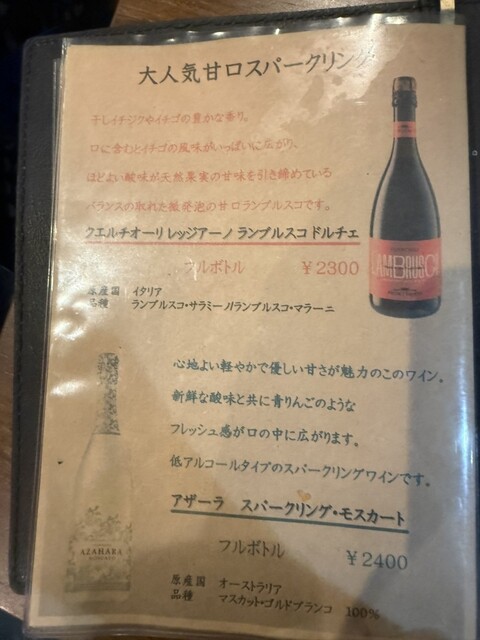 大人気甘口スパークリング
干しイチジクやイチゴの豊かな香り。
口に含むとイチゴの風味がいっぱいに広がり、
ほどよい酸味が天然果実の甘味を引き締めている
バランスの取れた微発泡の甘口ランブルスコです。
クエルチオーリ レッジアーノ ランブルスコ ドルチェ
フルボトル ￥2300
原産国 イタリア
品種 ランブルスコ・サラミーノ/ランブルスコ・マラーニ
LAMBRUSCO
心地よい軽やかで優しい甘さが魅力のこのワイン。
新鮮な酸味と共に青りんごのような
フレッシュ感が口の中に広がります。
低アルコールタイプのスパークリングワインです。
アザーラ スパークリング・モスカート
フルボトル ￥2400
原産国 オーストラリア
品種 マスカット・ゴルドブランコ 100%
AZAHARA